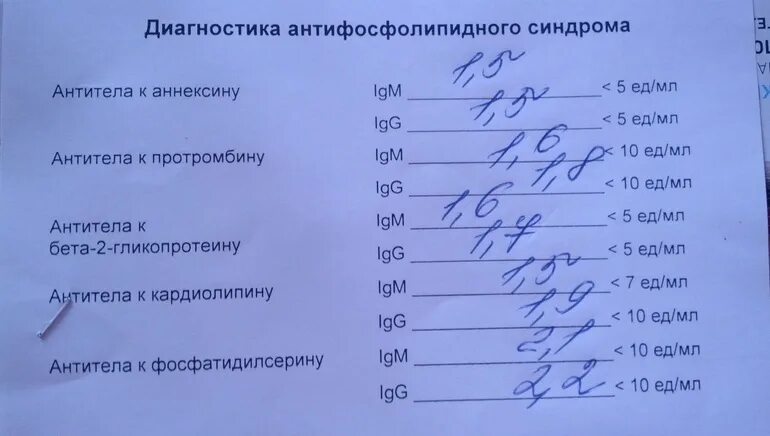 Диагностика антифосфолипидного синдрома
Антитела к аннексину IgM 1,5 < 5 ед/мл
IgG 1,5 < 5 ед/мл
Антитела к протромбину IgM 1,6 < 10 ед/мл
IgG 1,8 < 10 ед/мл
Антитела к IgM 1,6 < 5 ед/мл
бета-2-гликопротеину IgG 1,7 < 5 ед/мл
Антитела к кардиолипину IgM 1,5 < 7 ед/мл
IgG 1,9 < 10 ед/мл
Антитела к фосфатидилсерину IgM 2,1 < 10 ед/мл
IgG 2,2 < 10 ед/мл